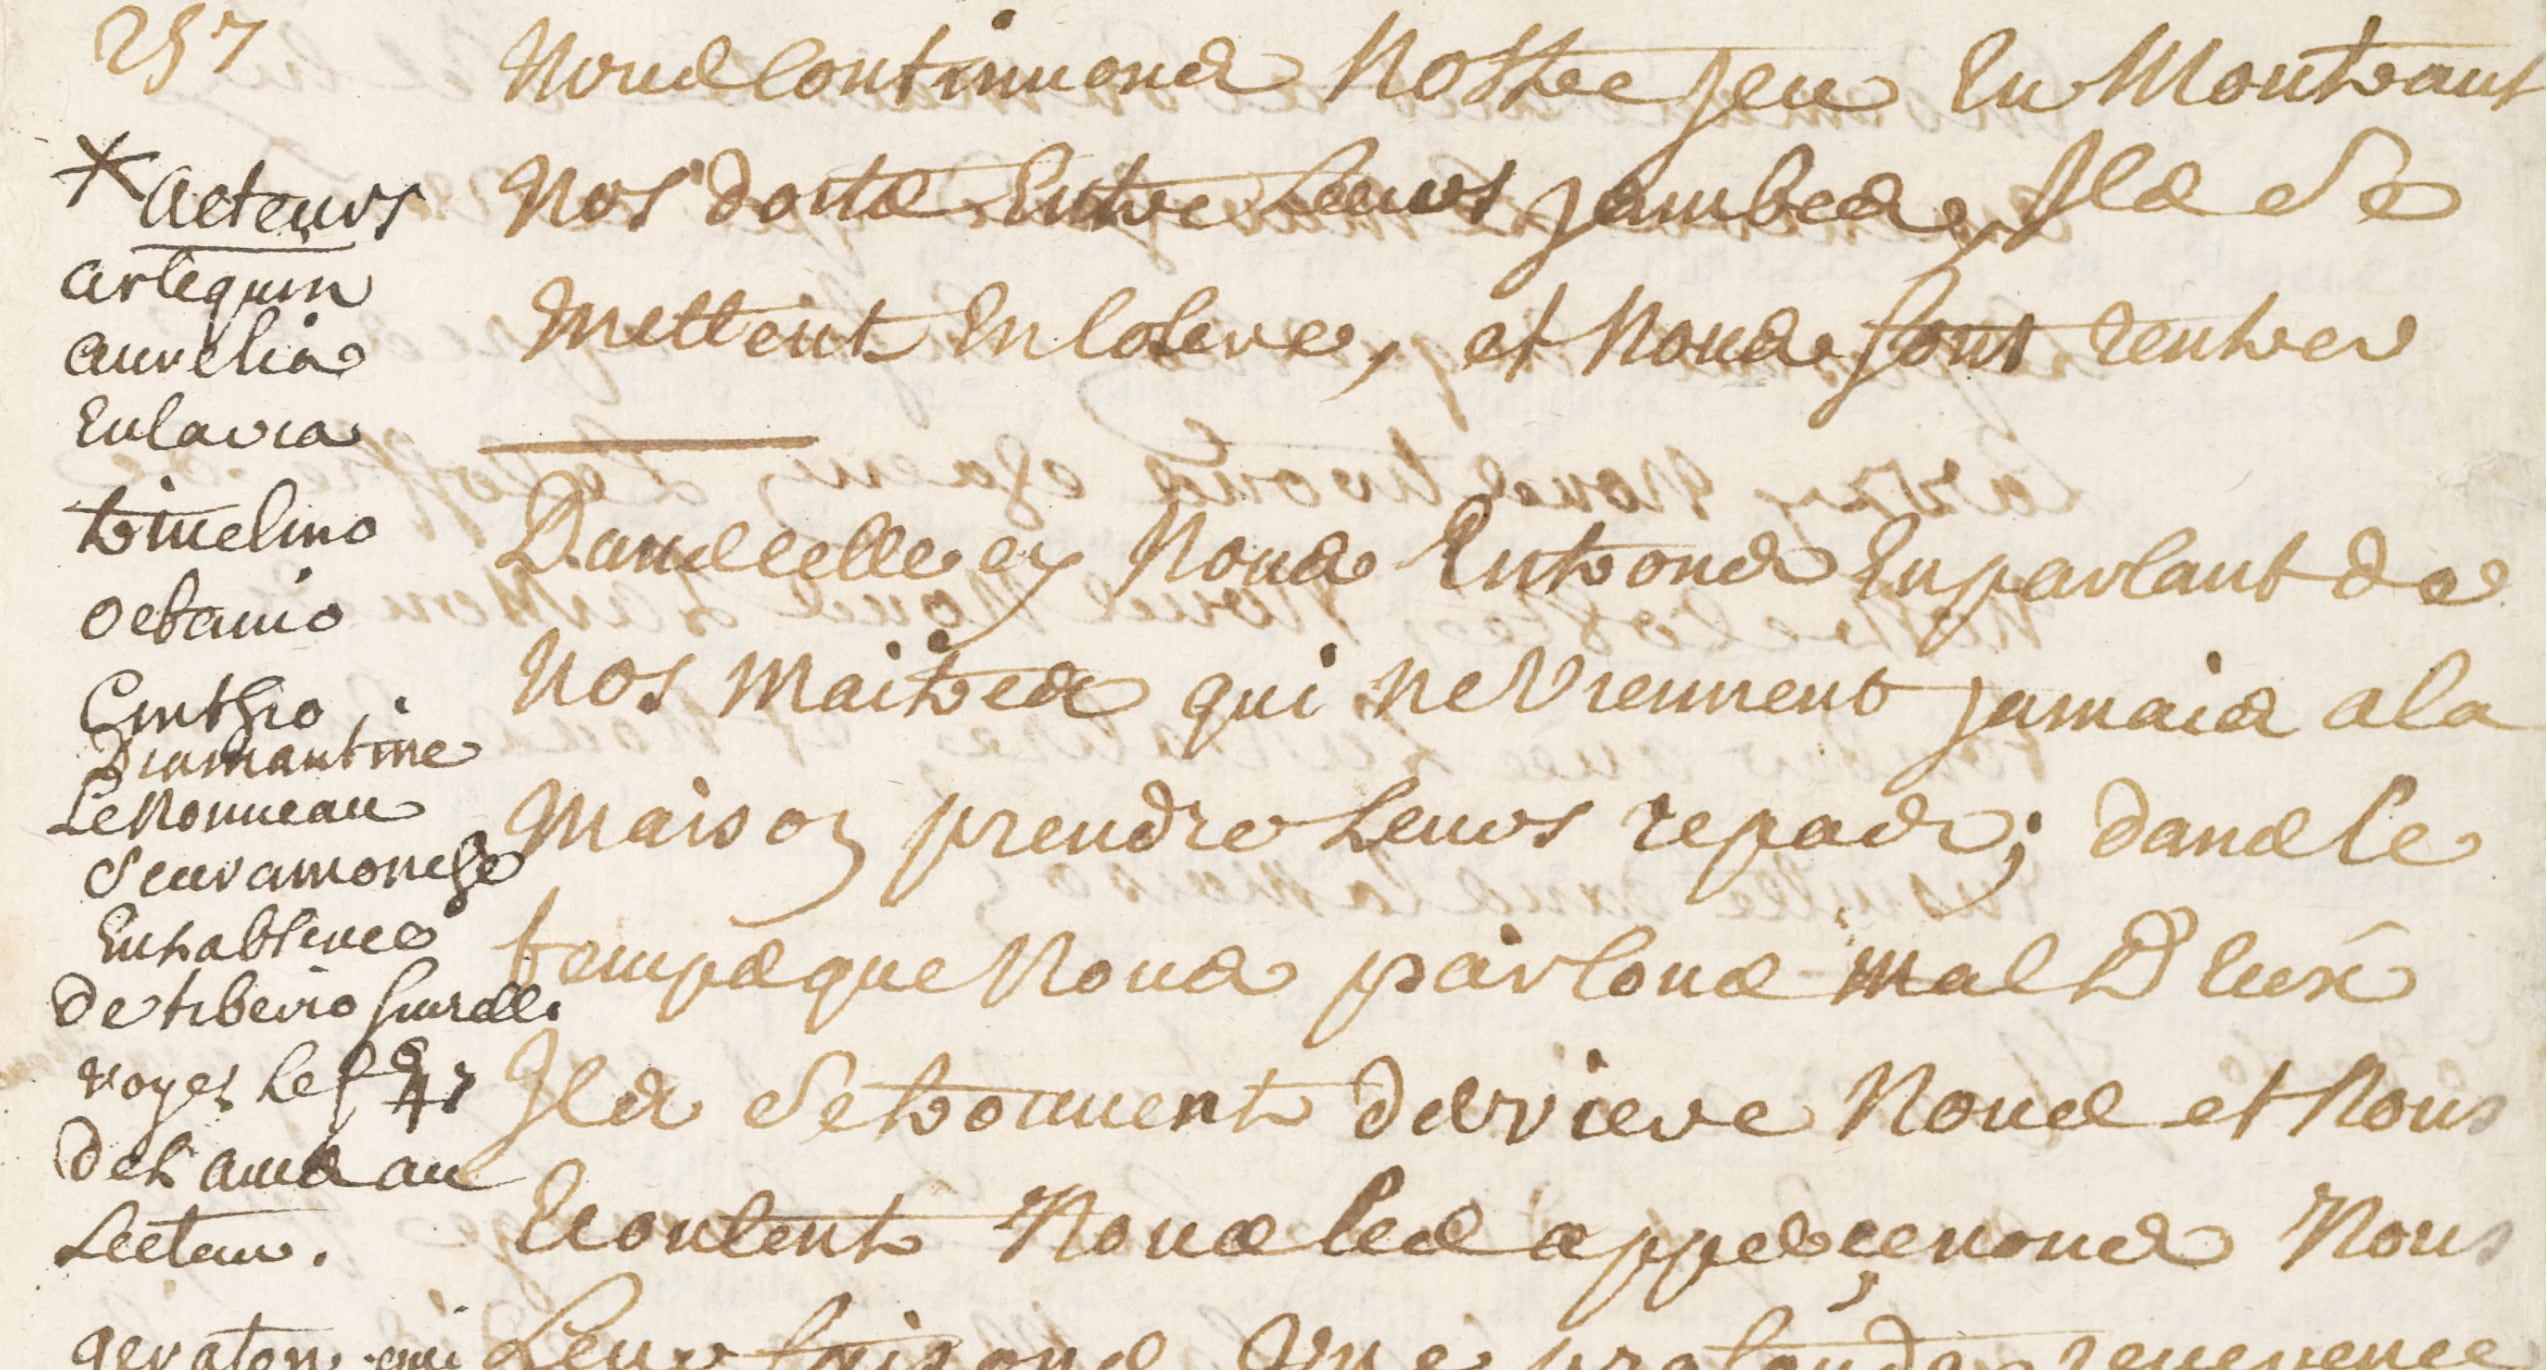 257
* acteurs
arlequin
aurelia
Eularia
trivelino
octavio
Cinthio
Diamantine
Le Nonneau
Scaramouche
En tablence
de tiberio fiurelli
voyez le fo 47
de lavis au
Lecteur.
geraton qui
Nous Continuons Nostre jeu En Montrant
Nos doits Entre Leurs jambes, Ils Se
Mettent En Colere, et Nous font rentrer
Dans celle cy Nous Entrons En parlant de
Nos Maitres qui ne Viennent jamais a la
Maison prendre Leurs repas; dans le
temps que Nous parlons mal D'Eux
Ils Se trouvent derriere Nous et Nous
Ecoutent Nous les apperçevons Nous
Leur faisons Une profonde reverence